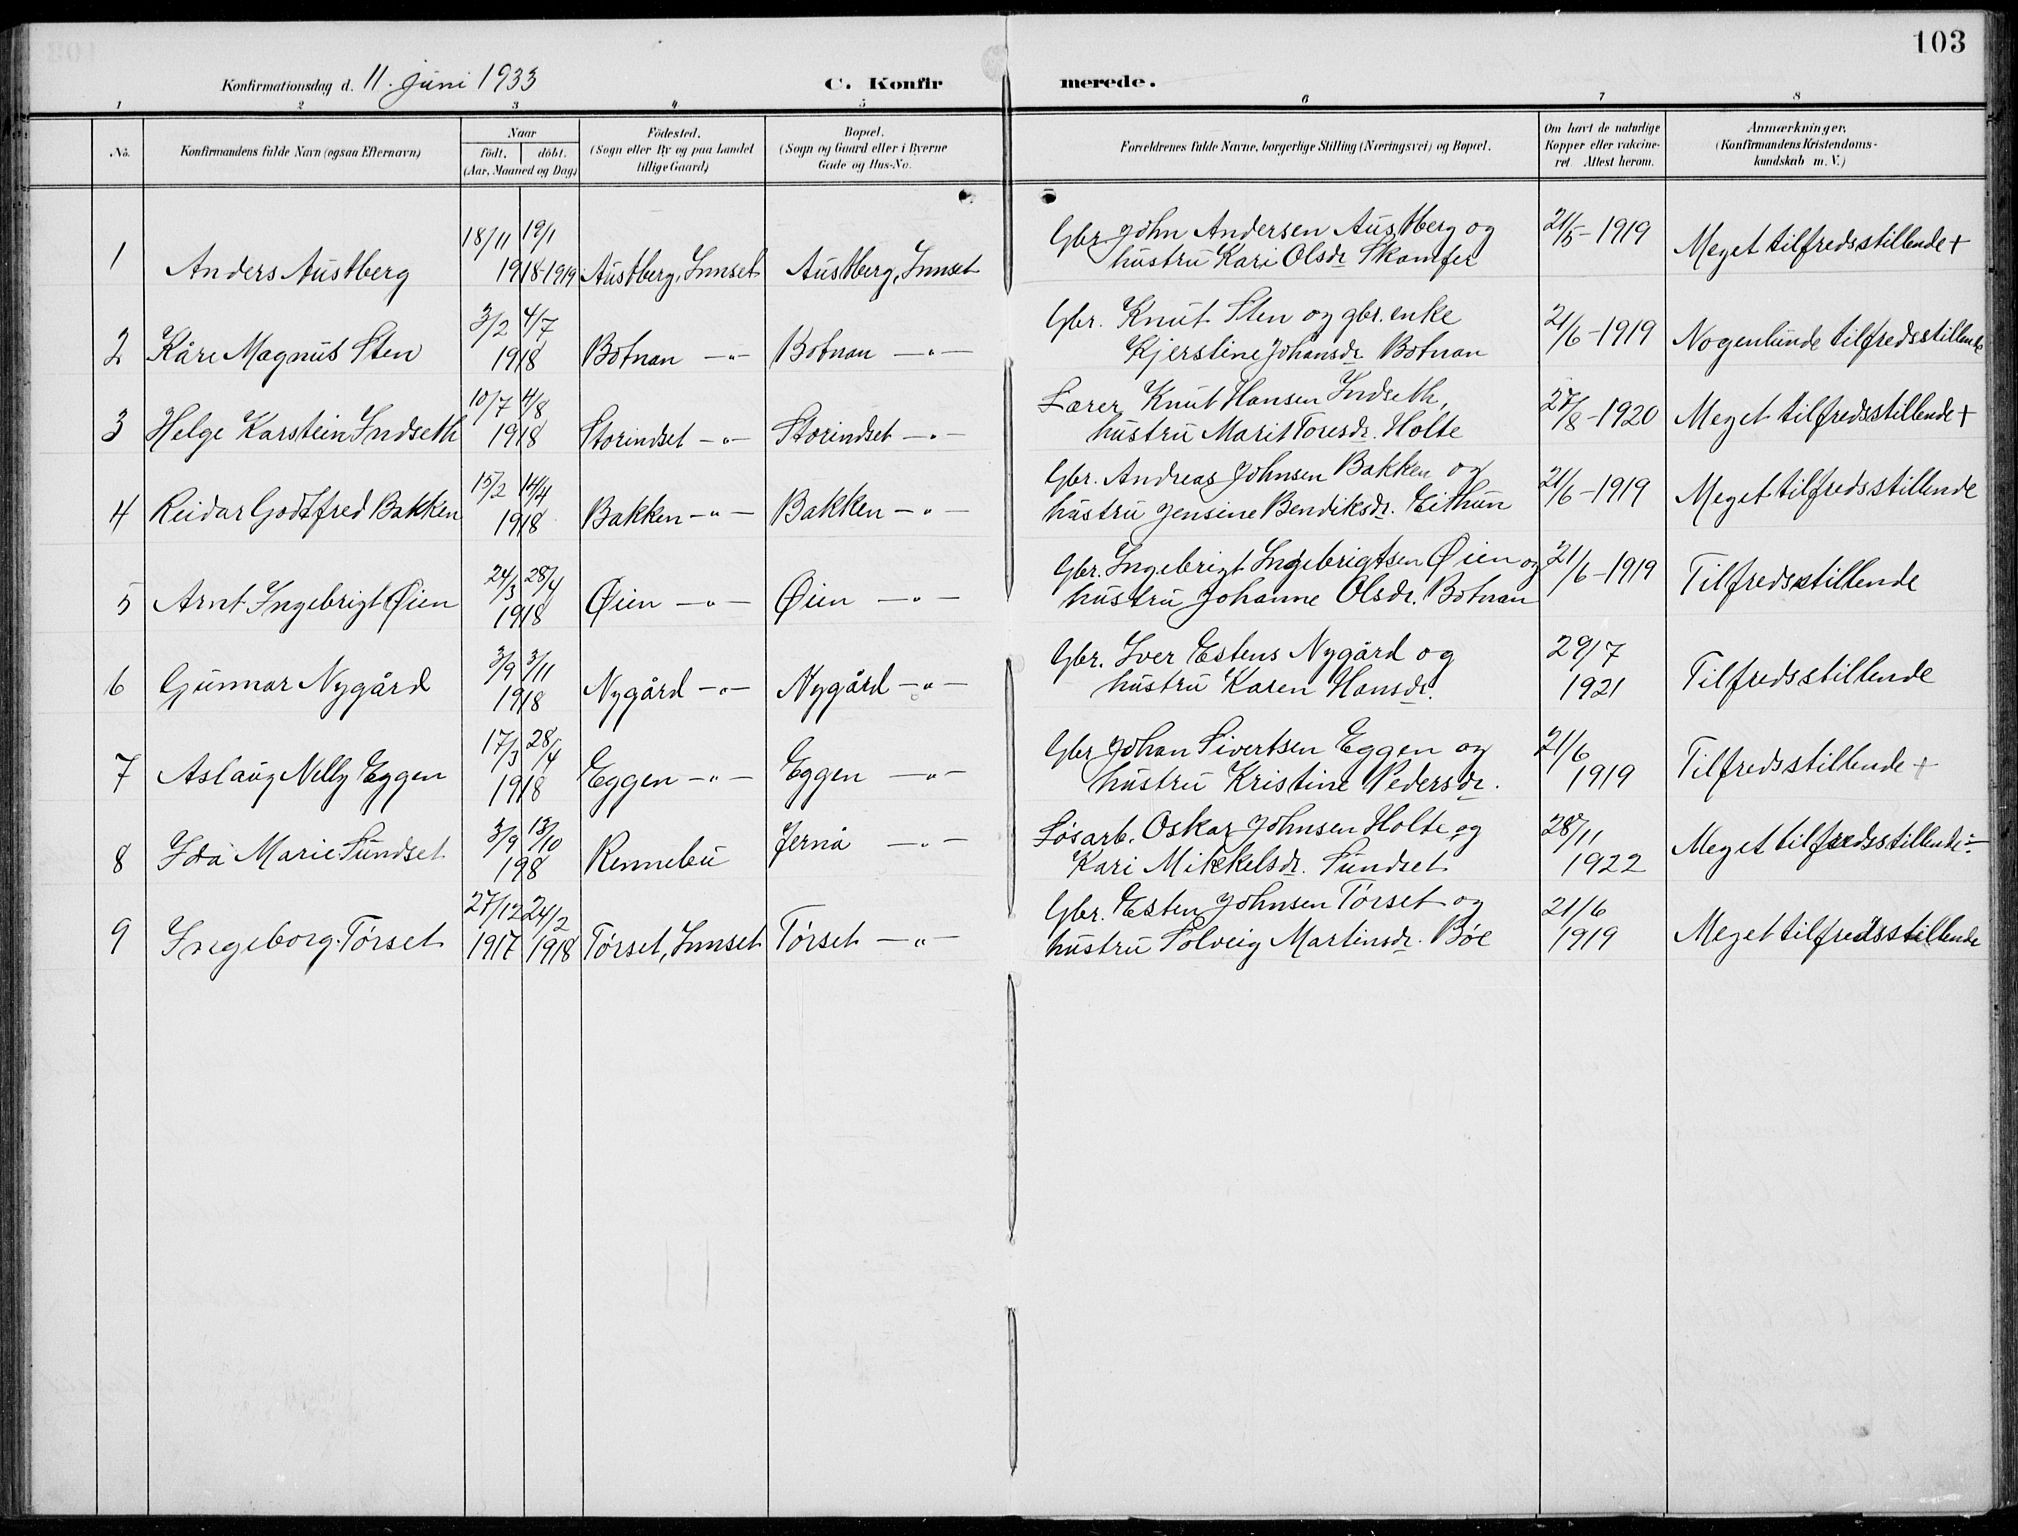 103
Konfirmationsdag d. 11. juni 1933
C. Konfirmerede.
1 2 3 4 5 6 7 8
No.
Konfirmandens fulde Navn (ogsaa Efternavn)
Naar
födt. döbt.
(Aar, Maaned og Dag)
Födested.
(Sogn eller By og paa Landet
tillige Gaard)
Bopæl.
(Sogn og Gaard eller i Byerne
Gade og Hus-No.
Forældrenes fulde Navne, borgerlige Stilling (Næringsvei) og Bopæl.
Om havt de naturlige
Kopper eller vakcine-
ret Attest herom.
Anmærkninger.
(Konfirmandens Kristendoms-
kundskab m. V.)
1 Anders Austberg 18/11 19/1
1918-1919 Austberg, Innset Austberg, Innset
Gbr John Andersen Austberg og
hustru Kari Olsdr Skamfer
21/5-1919 Meget tilfredsstillende +
2 Kåre Magnus Sten 3/2 4/7
1918 Botnan -"- Botnan -"-
Gbr. Knut Sten og gbr. enke
Kjerstine Johansdr Botnan
21/6-1919 Nogenlunde tilfredsstillende
3 Helge Karstein Indseth 10/7 4/8
1918 Storindset -"- Storindset -"-
Lærer Knut Hansen Indseth,
hustru Marit Toresdr. Holte
27/8-1920 Meget tilfredsstillende +
4 Reidar Godtfred Bakken 15/2 14/4
1918 Bakken -"- Bakken -"-
Gbr. Andreas Johnsen Bakken og
hustru Jensine Bendiksdr. Eithun
21/6-1919 Meget tilfredsstillende
5 Arnt Ingebrigt Øien 24/3 28/4
1918 Øien -"- Øien -"-
Gbr. Ingebrigt Ingebrigtsen Øien og
hustru Johanne Olsdr. Botnan
21/6-1919 Tilfredsstillende
6 Gunnar Nygård 3/9 3/11
1918 Nygård -"- Nygård -"-
Gbr. Iver Estens Nygård og
hustru Karen Hansdr.
29/7
1921 Tilfredsstillende
7 Aslaug Nelly Eggen 17/3 28/4
1918 Eggen -"- Eggen -"-
Gbr Johan Sivertsen Eggen og
hustru Kristine Pedersdr.
21/6
1919 Tilfredsstillende +
8 Ida Marie Sundset 3/9 13/10
198 Rennebu Jernå -"-
Løsarb. Oskar Johnsen Holte og
Kari Mikkelsdr. Sundset
28/11
1922 Meget tilfredsstillende ÷
9 Ingeborg Tørset 27/12 24/2
1917 1918 Tørset, Innset Tørset -"-
Gbr. Esten Johnsen Tørset og
hustru Solveig Martinsdr. Bøe
21/6
1919 Meget tilfredsstillende